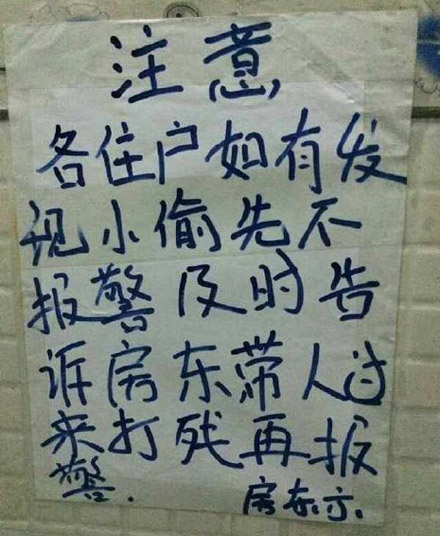 注意
各住户如有发
现小偷先不
报警及时告
诉房东带人过
来打残再报
警.
房东示.